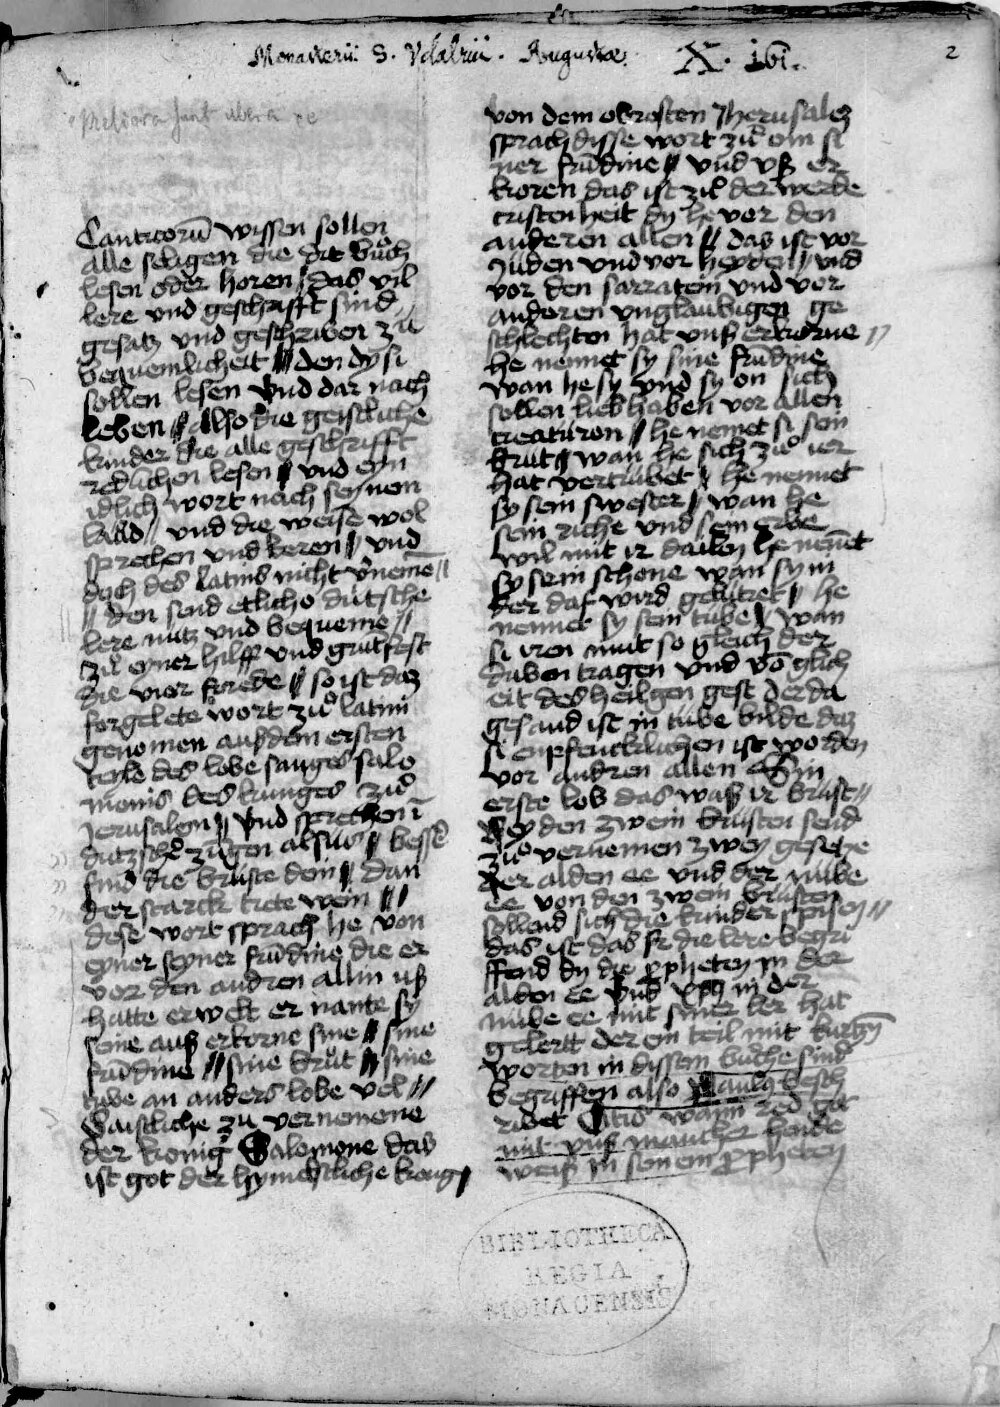 Monasterii S. Udalrici. Augustae. X. 161.
2
Meliora sunt ubera
Canticorū wissen sollen
alle seligen die dit bůch
lesen oder horen / das vil
lere vnd geschrifft sind
gesatz vnd geschriben zů
bequemlicheit // den dy si
sollen lesen vnd dar nach
leben // also die geistliche
kinder die alle geschrifft
redlichen lesen // vnd eyn
idlich wort nach seynem
laud // vnd die weise wol
sprechen vnd keren // vnd
doch des latins nicht v̄nemē //
// den send etliche dütsche
lere nutz vnd bequeme //
zů eyner hilff vnd grutfest
die vior frede // so ist daz
forgelete wort zů latini
genomen auß dem ersten
teyle des lobe sanges salo
monis des kunges zů
Jerusalem // vnd sprechen ī
dutzscher zūgen alsus // besser
sind die brüste dein // dan
der starck tete wein //
dese wort sprach he von
eyner seyner frūdine die er
vor den andren allin uß
hatte erwelt er nante sy
seine auß erkorne sine // sine
frūdine // sine brut // sine
tube an anders lobe vel //
Gaistliche zu vernemene
der konig Salomone das
ist got der hymelische konig
von dem obrosten Jherusalez
sprach disse wort zů om si
ner frūdine // vnd vß er
koren das ist zů der werde
cristenheit dy he vor den
anderen allen // das ist vor
Juden vnd vor heyden // vnd
vor den sarratein vnd vor
anderen vnglaubigen ge
schlechten hat vnß erkorne //
he nennet sy sine frūdine
wan he sy vnd sy on sich
sollen liebhaben vor allen
creaturen // he nemet si sein
brut // wan he sich zů ier
hat vertrübet // he nennet
sy sein swester // wan he
sein riche vnd sein erbe
wil mit ir dailen he nēnet
sy sein schone wan sy in
der daf wird gelutret // he
nennet sy sein tube // wan
si iren mut so gleich der
duben tragen vnd vō glich
eit des heilgen gest der da
gesand ist in tube bilde daz
si enpfencklichen ist worden
vor andren allen Sin
erste lob das waß ir brust //
Bey den zwein brusten send
zů vernemen zwey gesetze
der alden ee vnd der nübe
ee von den zwein brusten
sollend sich die kinder spisen //
das ist das sy die lere begri
ffend dy die ppheten in der
alden ee vnd in der
nübe ee mit siner ler hat
gelert der ein teil mit kurtzen
worten in dissem buche sind
begriffen also Paulꝯ besch
ribet wann red got
mit vnß mancher hende
weiß in seinem ppheten
BIBLIOTHECA
REGIA
MONACENSIS